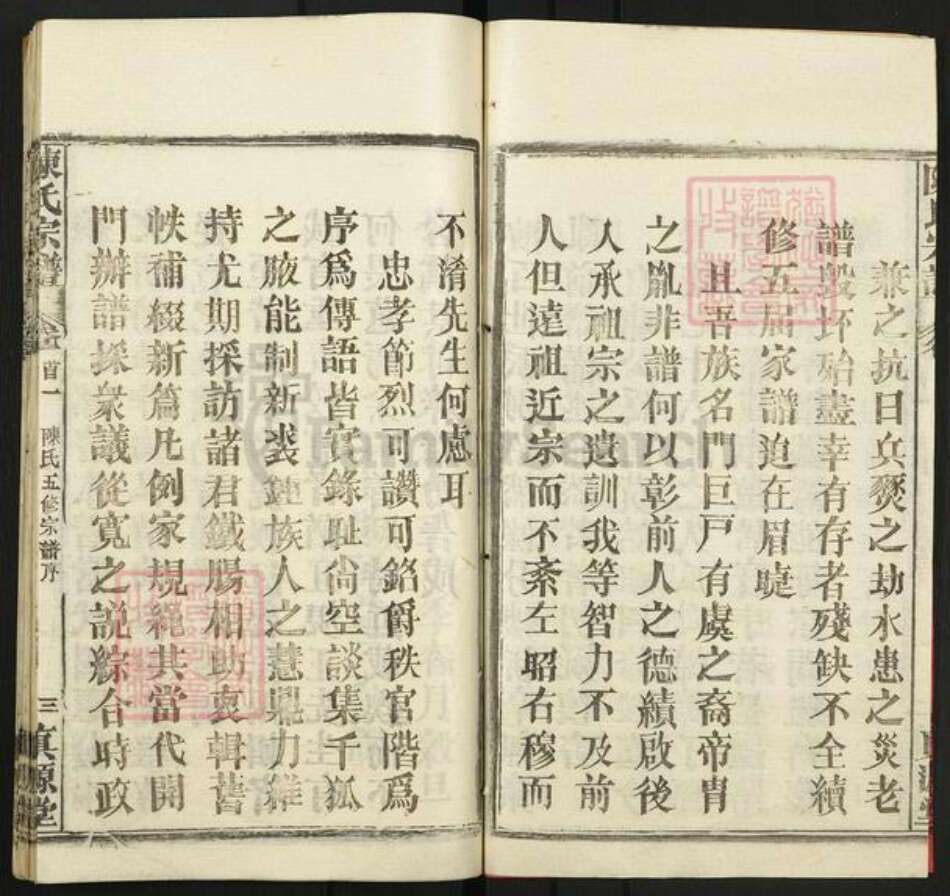 兼之抗日兵燹之劫水患之災老
譜毀坏殆盡幸有存者殘缺不全續
修五屆家譜迫在眉睫
且吾族名門巨戸有虞之裔帝胄
之胤非譜何以彰前人之德績啟後
人承祖宗之遺訓我等智力不及前
人但遠祖近宗而不紊左昭右穆而
不淆先生何慮耳
忠孝節烈可讚可銘爵秩官階爲
序爲傳語皆實錄耻尙空談集千狐
之腋能制新裘鍾族人之慧鼎力維
持尤期採訪諸君鐵腸相助裒輯舊
帙補綴新篇凡例家規繩其當代開
門辦譜採衆議從寬之説綜合時政
陳氏宗譜
首一
陳氏五修宗譜序
三
真源堂